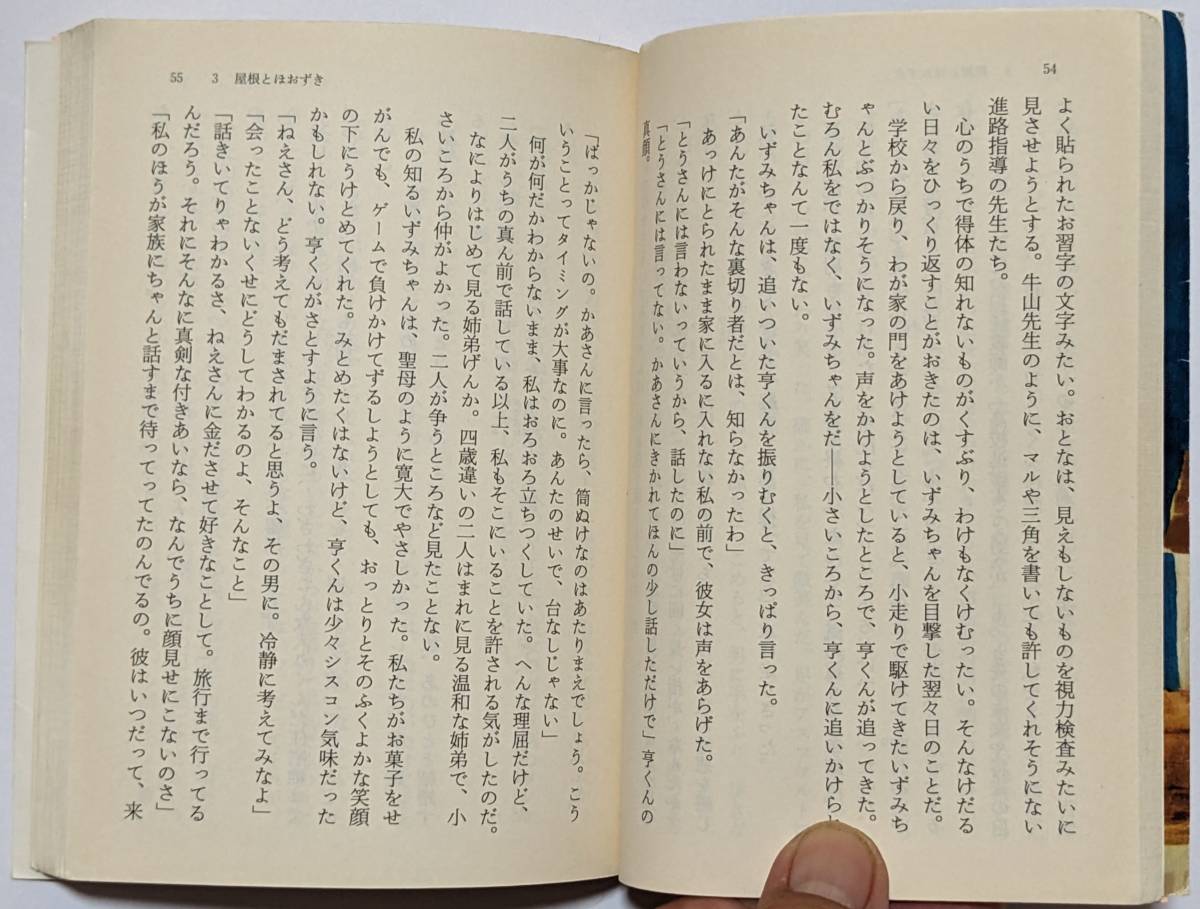 54
よく貼られたお習字の文字みたい。おとなは、見えもしないものを視力検査みたいに
見させようとする。牛山先生のように、マルや三角を書いても許してくれそうにない
進路指導の先生たち。
心のうちで得体の知れないものがくすぶり、わけもなくけむったい。そんなけだる
い日々をひっくり返すことがおきたのは、いずみちゃんを目撃した翌々日のことだ。
学校から戻り、わが家の門をあけようとしていると、小走りで駆けてきたいずみち
ゃんとぶつかりそうになった。声をかけようとしたところで、亨くんが追ってきた。
むろん私をではなく、いずみちゃんをだ――小さいころから、亨くんに追いかけられ
たことなんて一度もない。
いずみちゃんは、追いついた亨くんを振りむくと、きっぱり言った。
「あんたがそんな裏切り者だとは、知らなかったわ」
あっけにとられたまま家に入るに入れない私の前で、彼女は声をあらげた。
「とうさんには言わないっていうから、話したのに」
「とうさんには言ってない。かあさんにきかれてほんの少し話しただけで」亨くんの
真顔。
55 3 屋根とほおずき
「ばっかじゃないの。かあさんに言ったら、筒ぬけなのはあたりまえでしょう。こう
いうことってタイミングが大事なのに。あんたのせいで、台なしじゃない」
何が何だかわからないまま、私はおろおろ立ちつくしていた。へんな理屈だけど、
二人がうちの真ん前で話している以上、私もそこにいることを許される気がしたのだ。
なによりはじめて見る姉弟げんか。四歳違いの二人はまれに見る温和な姉弟で、小
さいころから仲がよかった。二人が争うところなど見たことない。
私の知るいずみちゃんは、聖母のように寛大でやさしかった。私たちがお菓子をせ
がんでも、ゲームで負けかけてずるしようとしても、おっとりとそのふくよかな笑顔
の下にうけとめてくれた。みとめたくはないけど、亨くんは少々シスコン気味だった
かもしれない。亨くんがさとすように言う。
「ねえさん、どう考えてもだまされてると思うよ、その男に。冷静に考えてみなよ」
「会ったことないくせにどうしてわかるのよ、そんなこと」
「話きいてりゃわかるさ、ねえさんに金ださせて好きなことして。旅行まで行ってる
んだろう。それにそんなに真剣な付きあいなら、なんでうちに顔見せにこないのさ」
「私のほうが家族にちゃんと話すまで待ってってたのんでるの。彼はいつだって、来